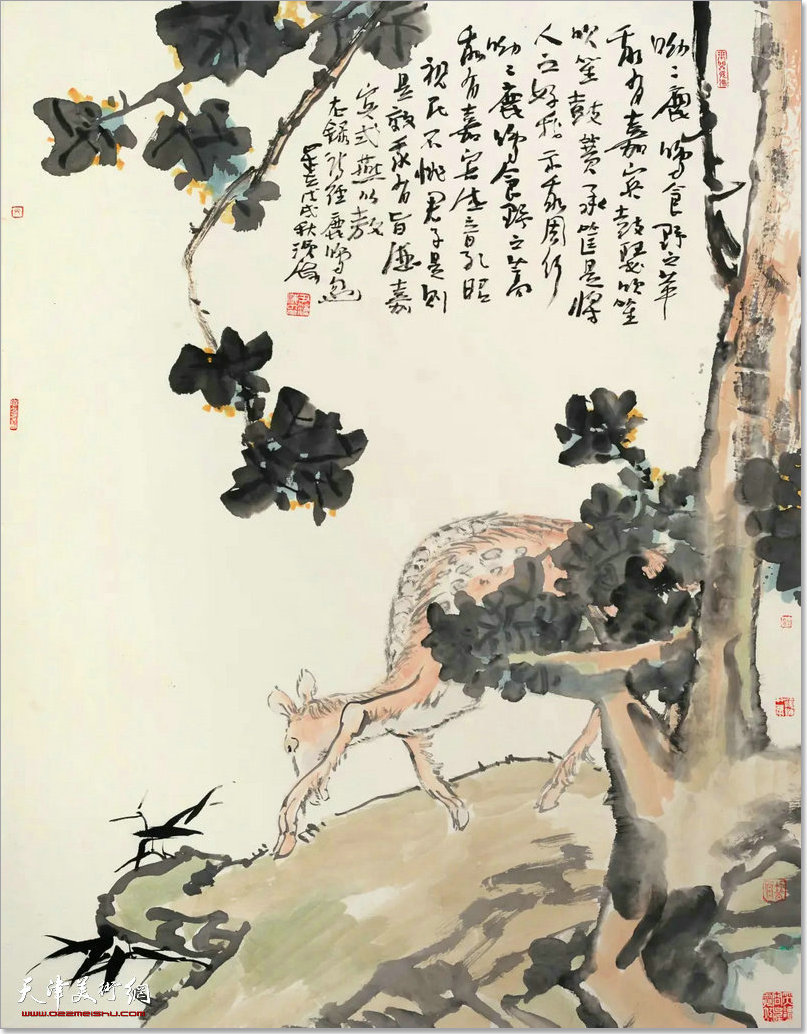 呦〻鹿鳴食野之苹
我有嘉宾鼓瑟吹笙
吹笙鼓簧承筐是将
人之好我示我周行
呦〻鹿鳴食野之蒿
我有嘉宾德音孔昭
視民不恌君子是则
是效我有旨酒嘉
宾式燕以敖
右録诗经鹿鳴
戊戌秋
天津美術網
www.022meishu.com